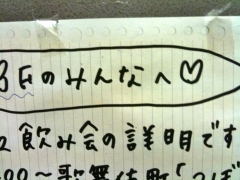 氏のみんなへ♡
飲み会の説明です
00〜歌舞伎町「つぼ